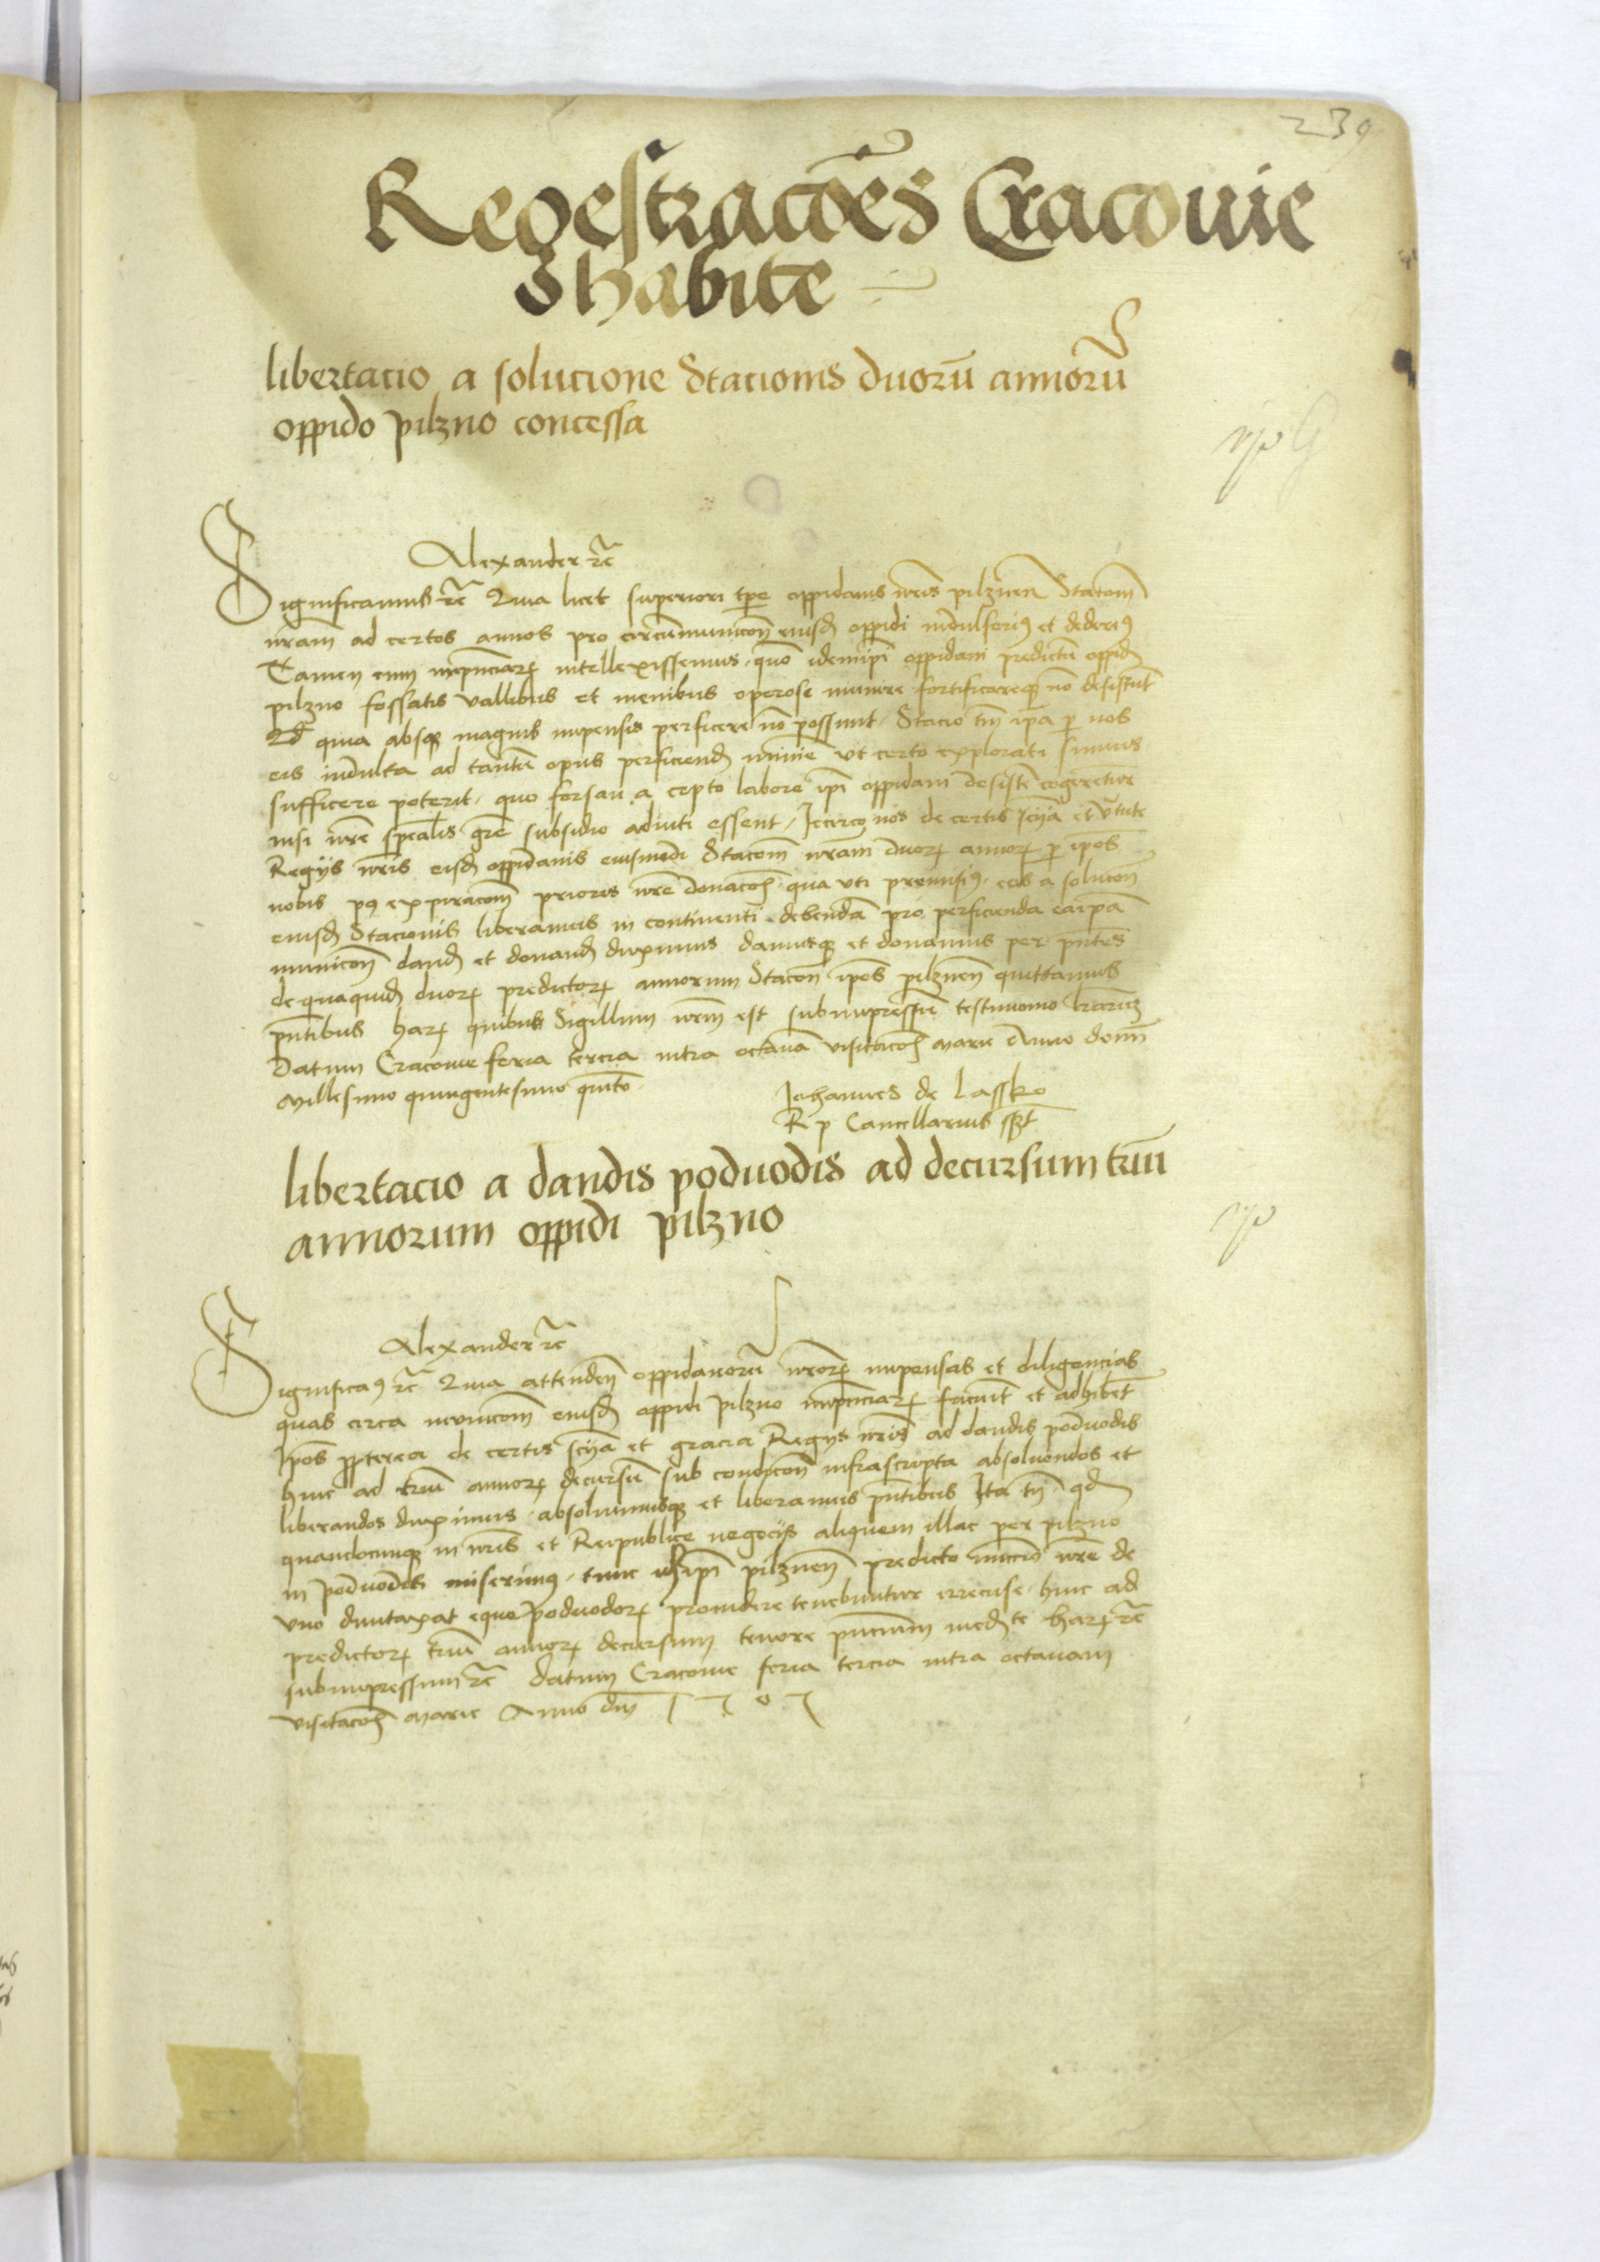 239
Regestracoēs Cracouie
habite
libertacio a solucione Stacionis duorū annorū
oppido pilzno concessa
Alexander ꝛc̄
Significamus ꝛc̄ Quia licet superiori tp̄e oppidanis nr̄is pilznen̄ Stacōm̄
nr̄am ad certos annos pro circūmunicōn̄ eiusd̄ oppidi indulserimꝰ et dederimꝰ
Tamen cum inpn̄ciarꝝ intellexissemus quō idemip̄i oppidani predictū oppidū
pilzno fossatis vallibus et menibus operose munire fortificareqꝫ nō desistūt
Id quia absqꝫ magnis impensis perficere nō possunt Stacio tn̄ ip̄a ꝑ nos
eis indulta ad tantū opus perficiend̄ minime vt certo explorati simus
sufficere poterit quo forsan a cepto labore ip̄i oppidani desistē cogerētur
nisi nr̄e sp̄ealis gr̄e subsidio adiuti essent Iccirco nos de certis scīja et v̄tute
Regijs nr̄is eisd̄ oppidanis eiusmodi Stacōm̄ nr̄am duorꝝ annorꝝ ꝑ ip̄os
nobis pꝰ expiracōm̄ prioris nr̄e donacōis qua vti premisimꝰ eos a solucōn̄
eiusd̄ Stacionis liberamus in continenti debendā pro perficienda eaip̄a
municōn̄ dand̄ et donand̄ duximus damusqꝫ et donamus per pn̄tes
de quaquid̄ duorꝝ predictorꝝ annorum Stacōn̄ ip̄os pilznen̄ quittamus
pn̄tibus harꝝ quibus Sigillum nr̄m est subimpressū testimonio lr̄arum
Datum Cracouie feria tercia intra octauā visitacōis Marie Anno domī
Millesimo quingentesimo quīto
Johannes de Lassko
R p Cancellarius sst
libertacio a dandis poduodis ad decursum triū
annorum oppidi pilzno
Alexander ꝛc̄
Significamꝰ ꝛc̄ Quia attenden̄ oppidanorū nr̄orꝝ impensas et diligencias
quas circa municōm̄ eiusd̄ oppidi pilzno inpn̄ciarꝝ faciūt et adhibēt
Ip̄os ꝓpterea de certis scīja et gracia Regijs nr̄is ad dandis poduodis
hinc ad triū annorꝝ decursū sub condicōn̄ infrascripta absoluendos et
liberandos duximus absoluimusqꝫ et liberamus pn̄tibus Ita tn̄ qd̄
quandocunqꝫ in nr̄is et Reipublice negocijs aliquem illac per pilzno
in poduodis miserimꝰ tunc ip̄i pilznen̄ predicto nunccio nr̄o de
vno duntaxat equo poduodorꝝ prouidere tenebuntur irrecuse hinc ad
predictorꝝ triū annorꝝ decursum tenore pn̄cium med̄te harꝝ ꝛc̄
subimpressum ꝛc̄ Datum Cracouie feria tercia intra octauam
visitacōis Marie Anno dn̄i 1505